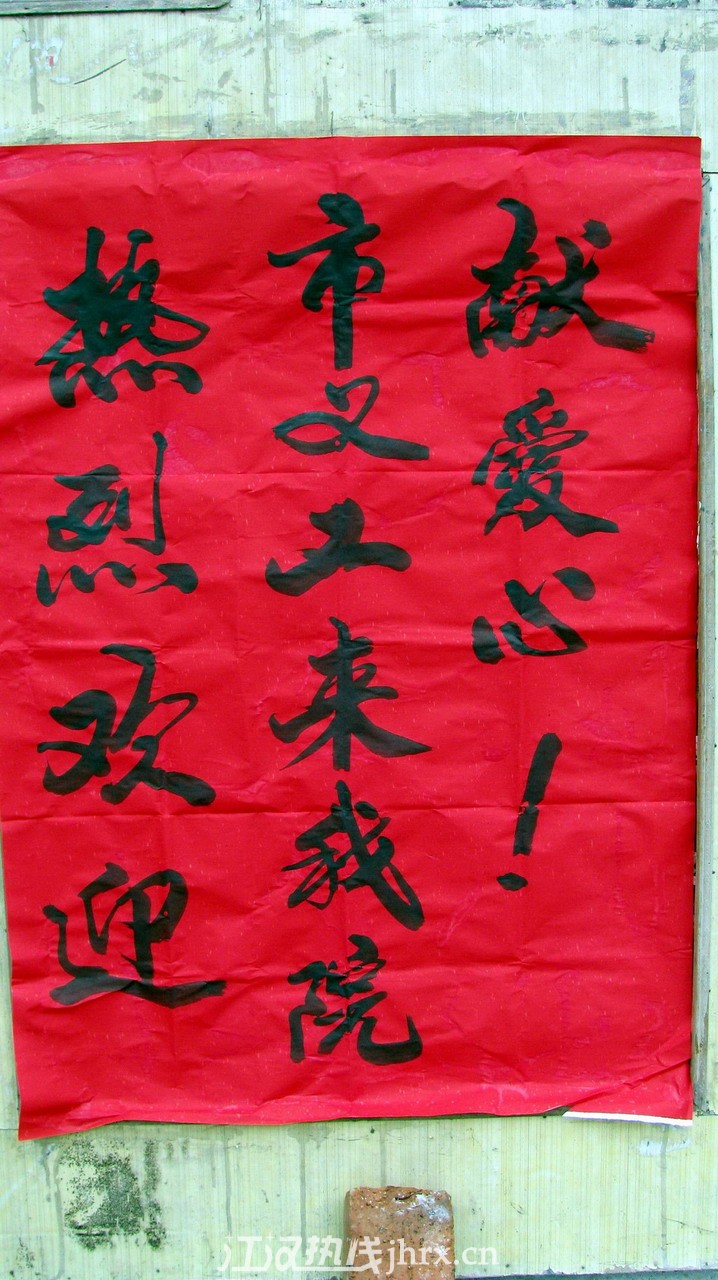 热烈欢迎
市义工来我院
献爱心！
江汉热线jhrx.cn